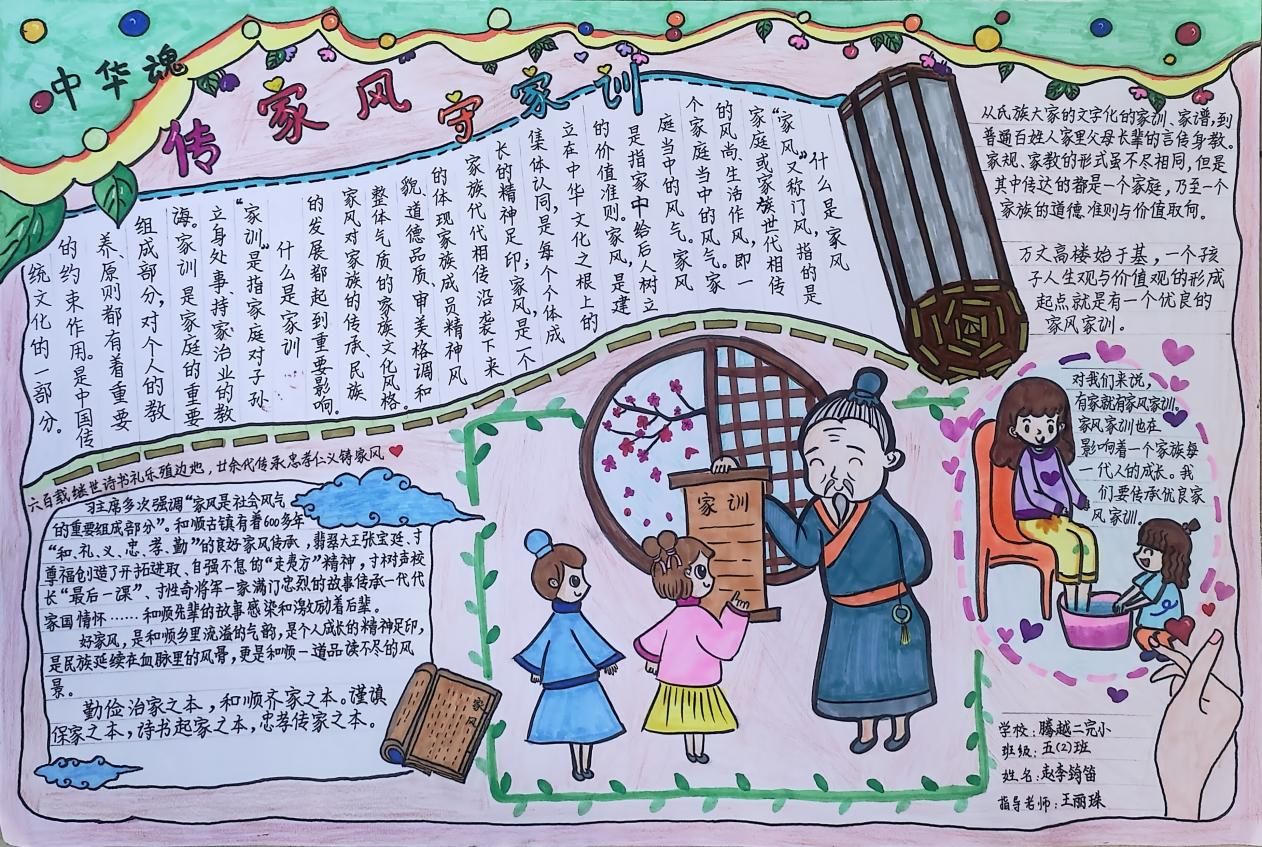 中华魂
传家风守家训
什么是家风
“家风”又称门风，指的是
家庭或家族世代相传
的风尚、生活作风，即一
个家庭当中的风气。家
庭当中的风气。家风
是指家中给后人树立
的价值准则。家风，是建
立在中华文化之根上的
集体认同，是每个个体成
长的精神足印；家风，是一个
家族代代相传沿袭下来
的体现家族成员精神风
貌、道德品质、审美格调和
整体气质的家族文化风格。
家风对家族的传承、民族
的发展都起到重要影响。
什么是家训
“家训”是指家庭对子孙
立身处事、持家治业的教
诲。家训是家庭的重要
组成部分，对个人的教
养、原则都有着重要
的约束作用。是中国传
统文化的一部分。
从氏族大家的文字化的家训、家谱，到
普通百姓人家里父母长辈的言传身教。
家规、家教的形式虽不尽相同，但是
其中传达的都是一个家庭，乃至一个
家族的道德准则与价值取向。
万丈高楼始于基，一个孩
子人生观与价值观的形成
起点就是有一个优良的
家风家训。
对我们来说，
有家就有家风家训。
家风家训也在
影响着一个家族每
一代人的成长。我
们要传承优良家
风家训。
六百载继世诗书礼乐殖边地，廿余代传承忠孝仁义铸家风
习主席多次强调“家风是社会风气
的重要组成部分”。和顺古镇有着600多年
“和、礼、义、忠、孝、勤”的良好家风传承，翡翠大王张宝廷、寸
尊福创造了开拓进取、自强不息的“走夷方”精神，寸树声校
长“最后一课”、寸性奇将军一家满门忠烈的故事传承一代代
家国情怀……和顺先辈的故事感染和激励着后辈。
好家风，是和顺乡里流溢的气韵，是个人成长的精神足印，
是民族延续在血脉里的风骨，更是和顺一道品读不尽的风
景。
勤俭治家之本，和顺齐家之本。谨慎
保家之本，诗书起家之本，忠孝传家之本。
家训
家风
学校：腾越二完小
班级：五(2)班
姓名：赵李筠笛
指导老师：王丽珠